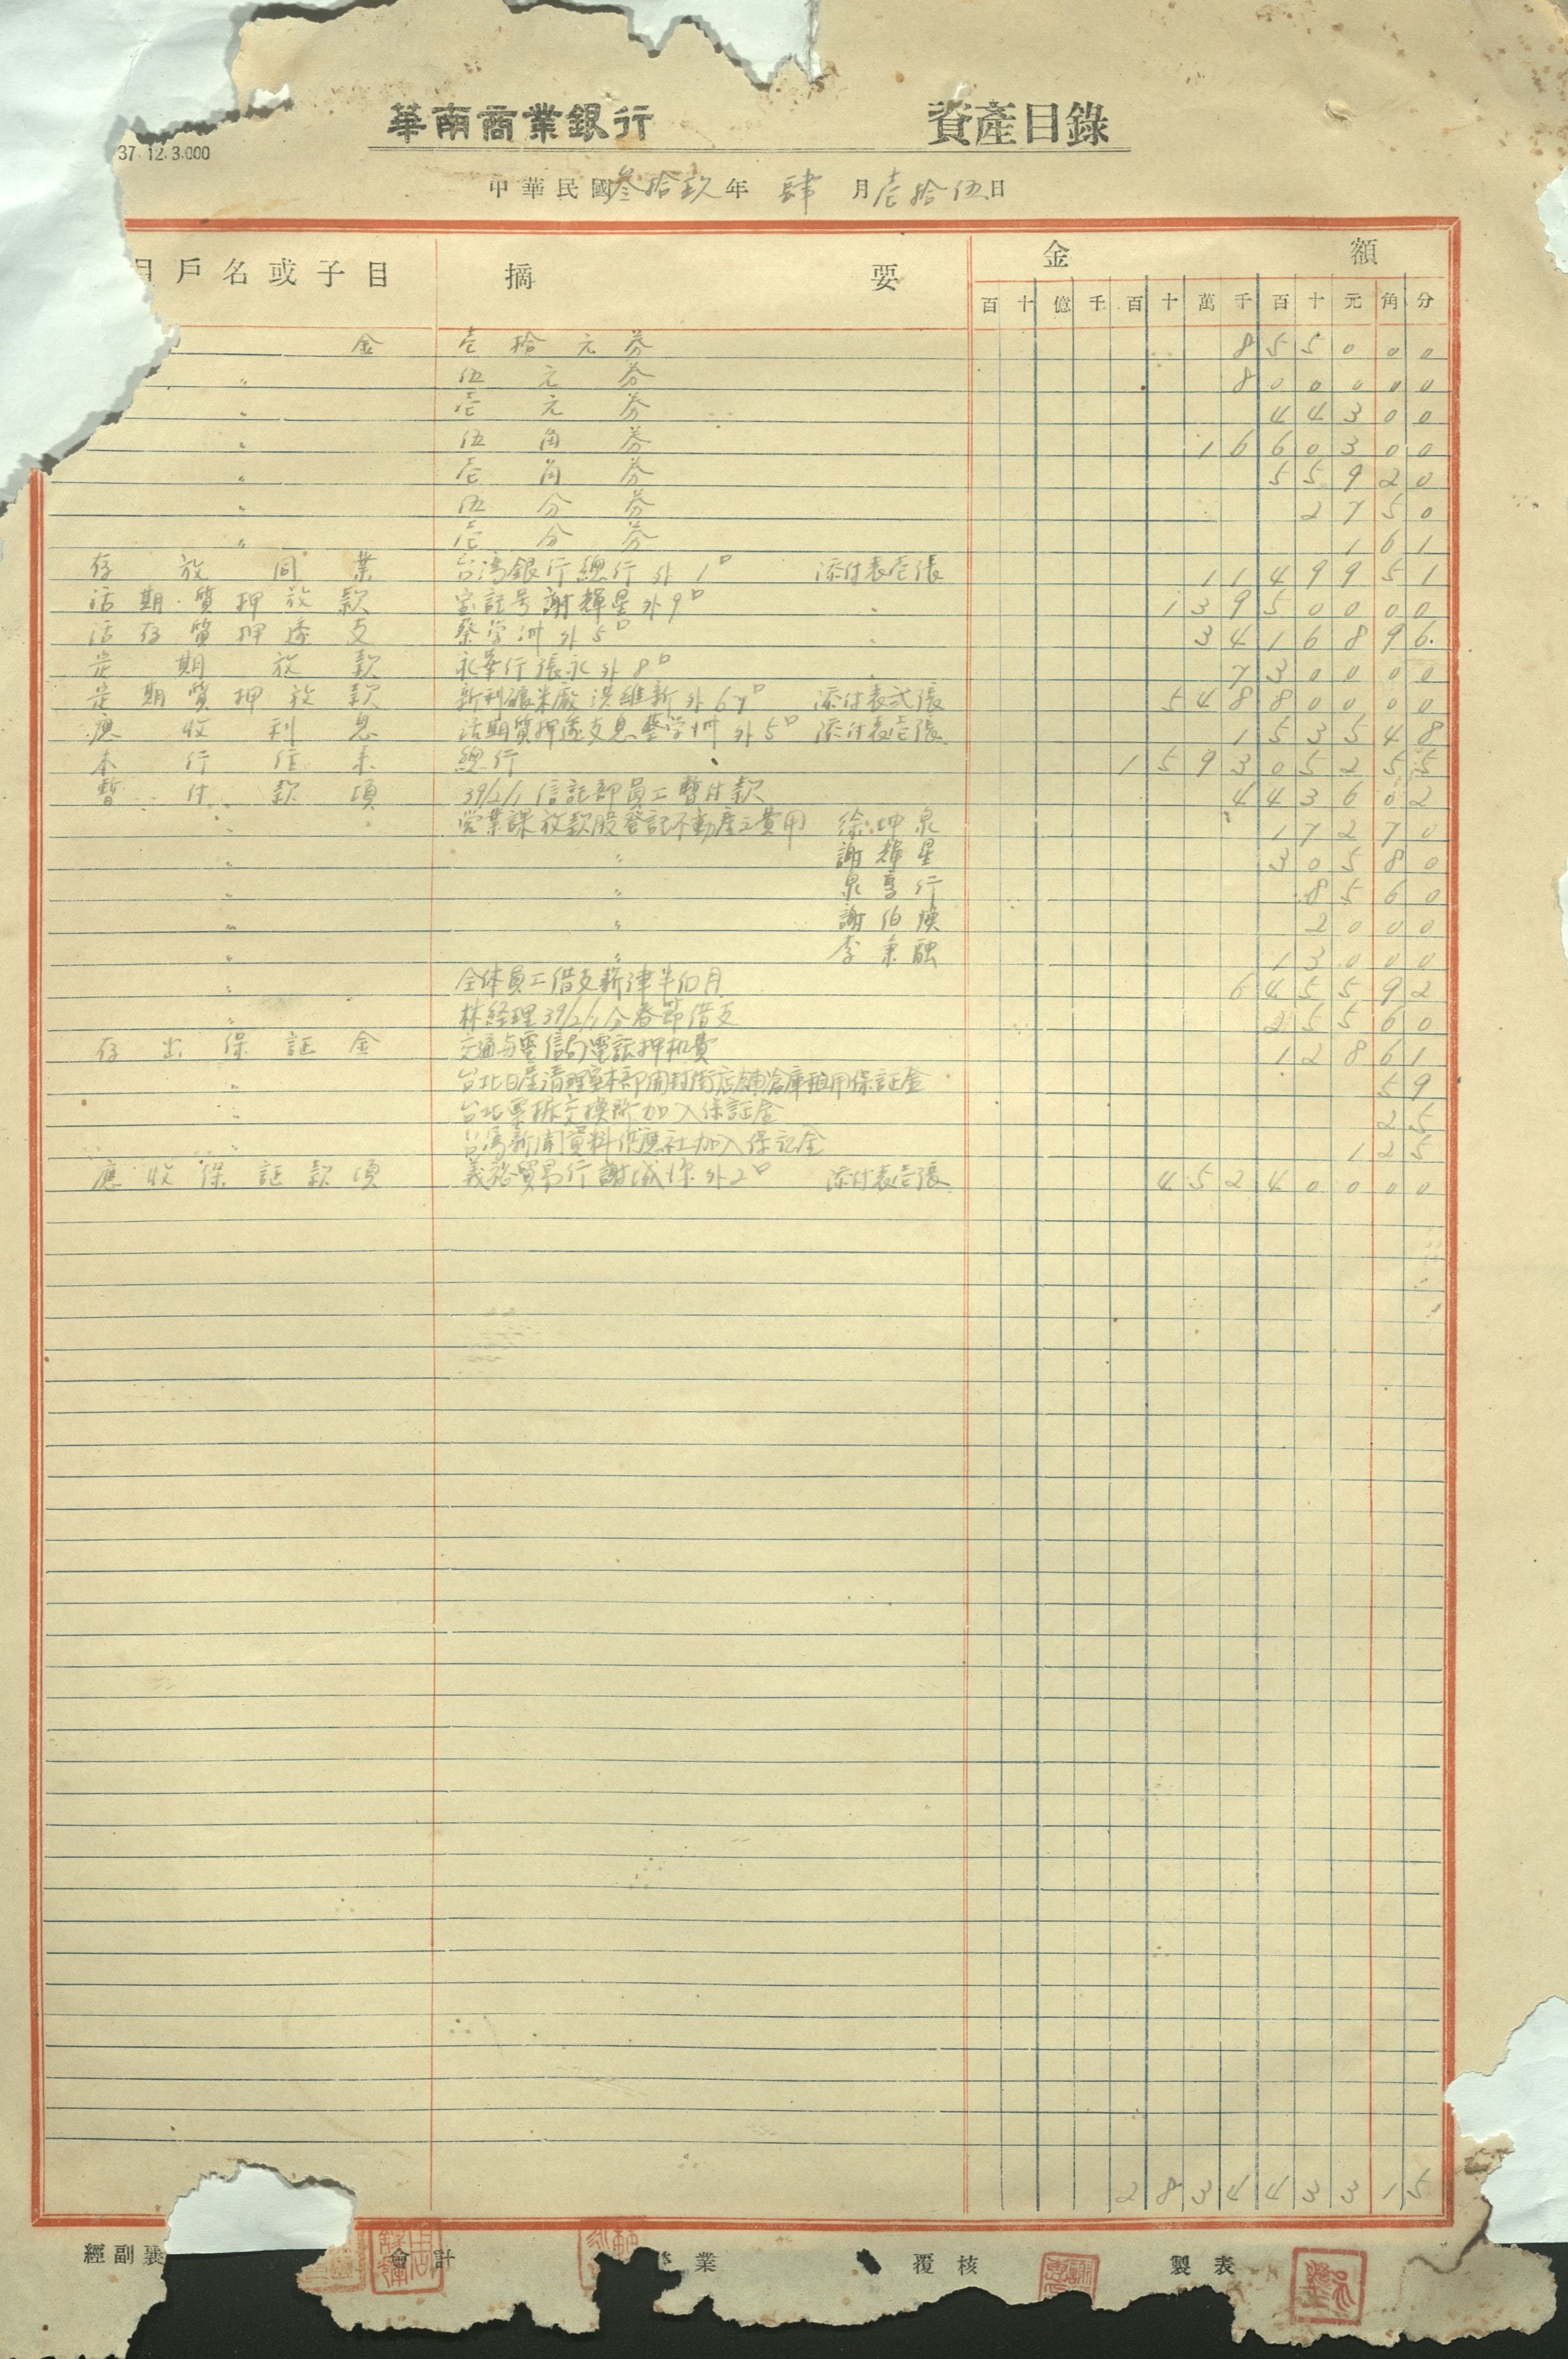 華南商業銀行 資產目錄
37.12.3.000
中華民國叁拾玖年肆月壱拾伍日
目戶名或子目 摘要 金額
百十億千百十萬千百十元角分
金 壱拾元券 855000
〃 伍元券 800000
〃 壱元券 44300
〃 伍角券 1660300
〃 壱角券 55920
〃 伍分券 2750
〃 壱分券 161
存放同業 台湾銀行總行外1口 添付表壱張 1149951
活期質押放款 謝輝星外9口 〃 13950000
活存質押透支 蔡学洲外5口 〃 3416896
定期放款 永華行張永外8口 〃 730000
定期質押放款 新利碾米廠洪維新外67口 添付表弍張 54880000
應收利息 活期質押透支息蔡学洲外5口 添付表壱張 153548
本行往来 總行 159305255
暫付款項 39/2/1 信託部員工暫付款 443602
〃 営業課放款股登記不動産之費用 徐坤泉 17270
〃 〃 謝輝星 30580
〃 〃 泉亨行 8560
〃 〃 謝伯煥 2000
〃 〃 李秉融 13000
〃 全体員工借支薪津半個月 645592
〃 林経理39/2/1今春節借支 25560
存出保証金 交通与電信局電話押机費 12861
〃 台北日産清理室本部開封街店舗倉庫租用保証金 59
〃 台北票据交換所加入保証金 25
〃 台湾新聞資料供應社加入保証金 125
應收保証款項 義裕貿易行謝成 外2口 添付表壱張 45240000
283443315
經副襄 會計 業 覆核 製表